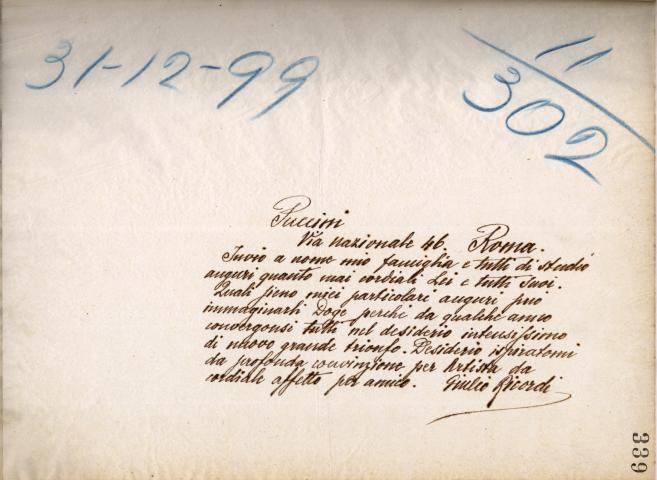 31-12-99
11
302
Puccini
Via nazionale 46. Roma.
Invio a nome mio famiglia e tutti di studio
auguri quanto mai cordiali Lei e tutti suoi.
Quali sieno miei particolari auguri può
immaginarli Doge perchè da qualche anno
convergonsi tutti nel desiderio intensissimo
di nuovo grande trionfo. Desiderio ispiratomi
da profonda convinzione per Artista da
cordiale affetto per amico. Giulio Ricordi
339